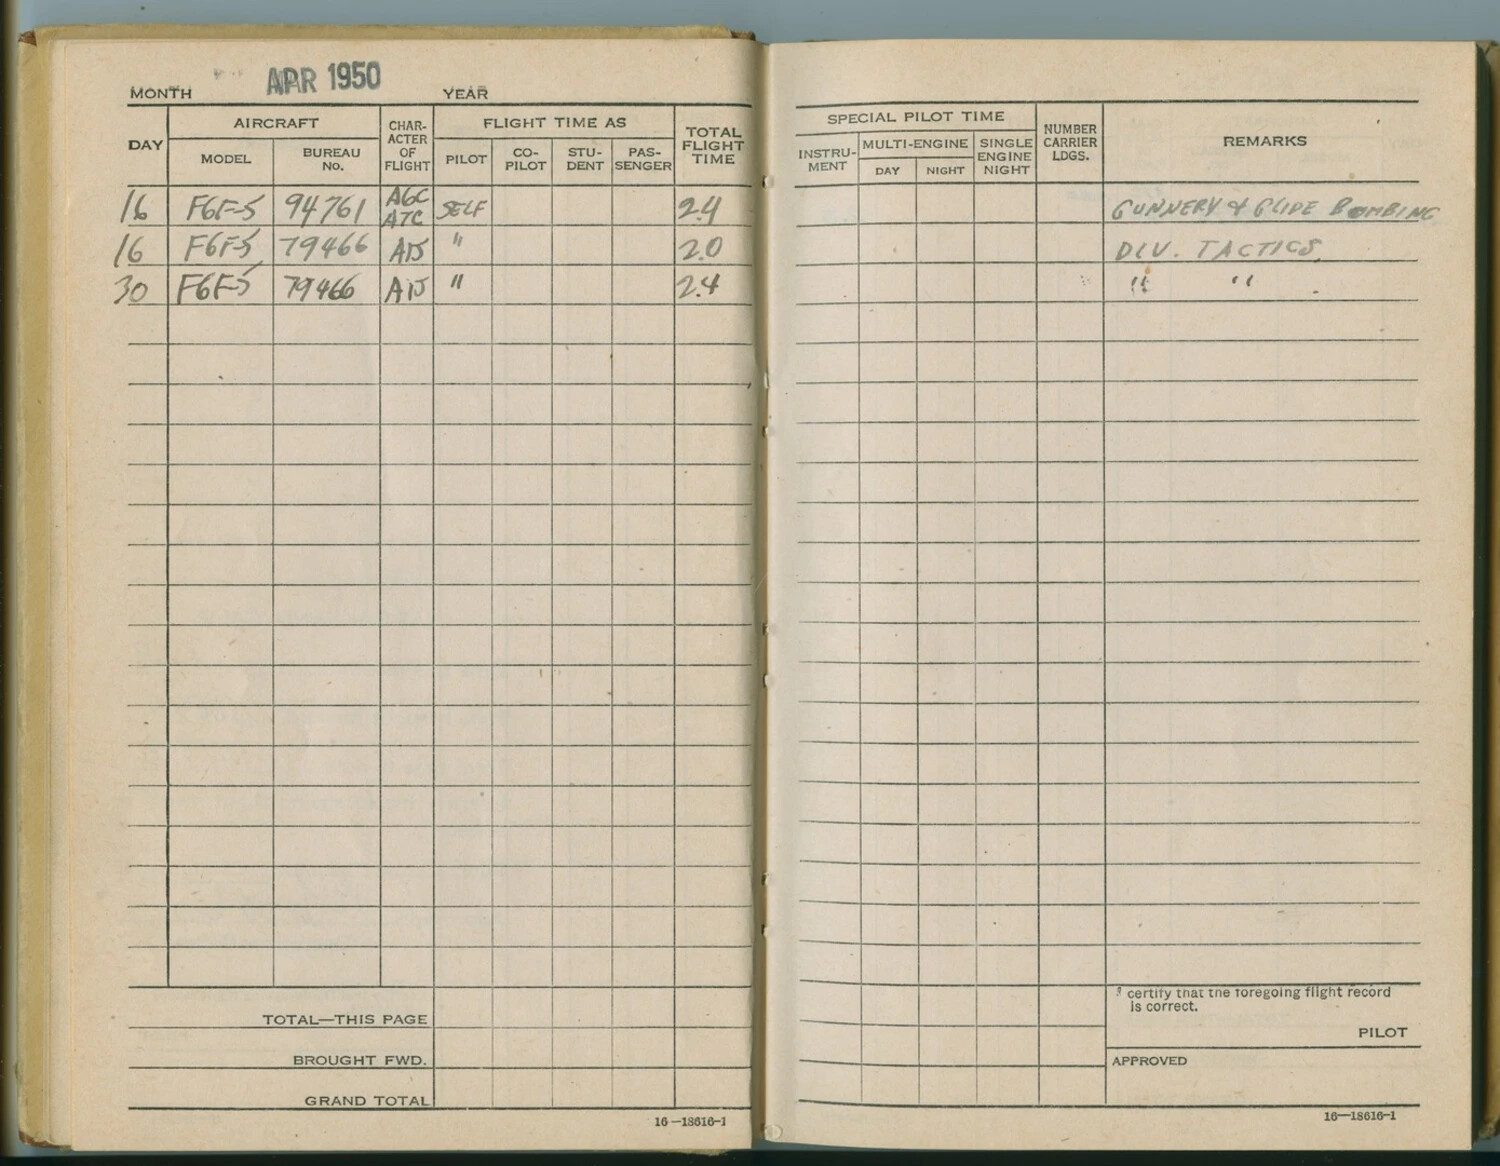 MONTH APR 1950 YEAR
DAY AIRCRAFT CHAR-ACTER OF FLIGHT FLIGHT TIME AS TOTAL FLIGHT TIME
MODEL BUREAU No. PILOT CO-PILOT STU-DENT PAS-SENGER
16 F6F-5 94761 AGC ATC SELF 2.4
16 F6F5 79466 " 2.0
30 F6F5 79466 " 2.4
TOTAL—THIS PAGE
BROUGHT FWD.
GRAND TOTAL
16—18616-1
SPECIAL PILOT TIME NUMBER CARRIER LDGS. REMARKS
INSTRU-MENT MULTI-ENGINE SINGLE ENGINE NIGHT
DAY NIGHT
GUNNERY & GLIDE BOMBING
DIV. TACTICS
" "
certify that the foregoing flight record
is correct.
PILOT
APPROVED
16—18616-1